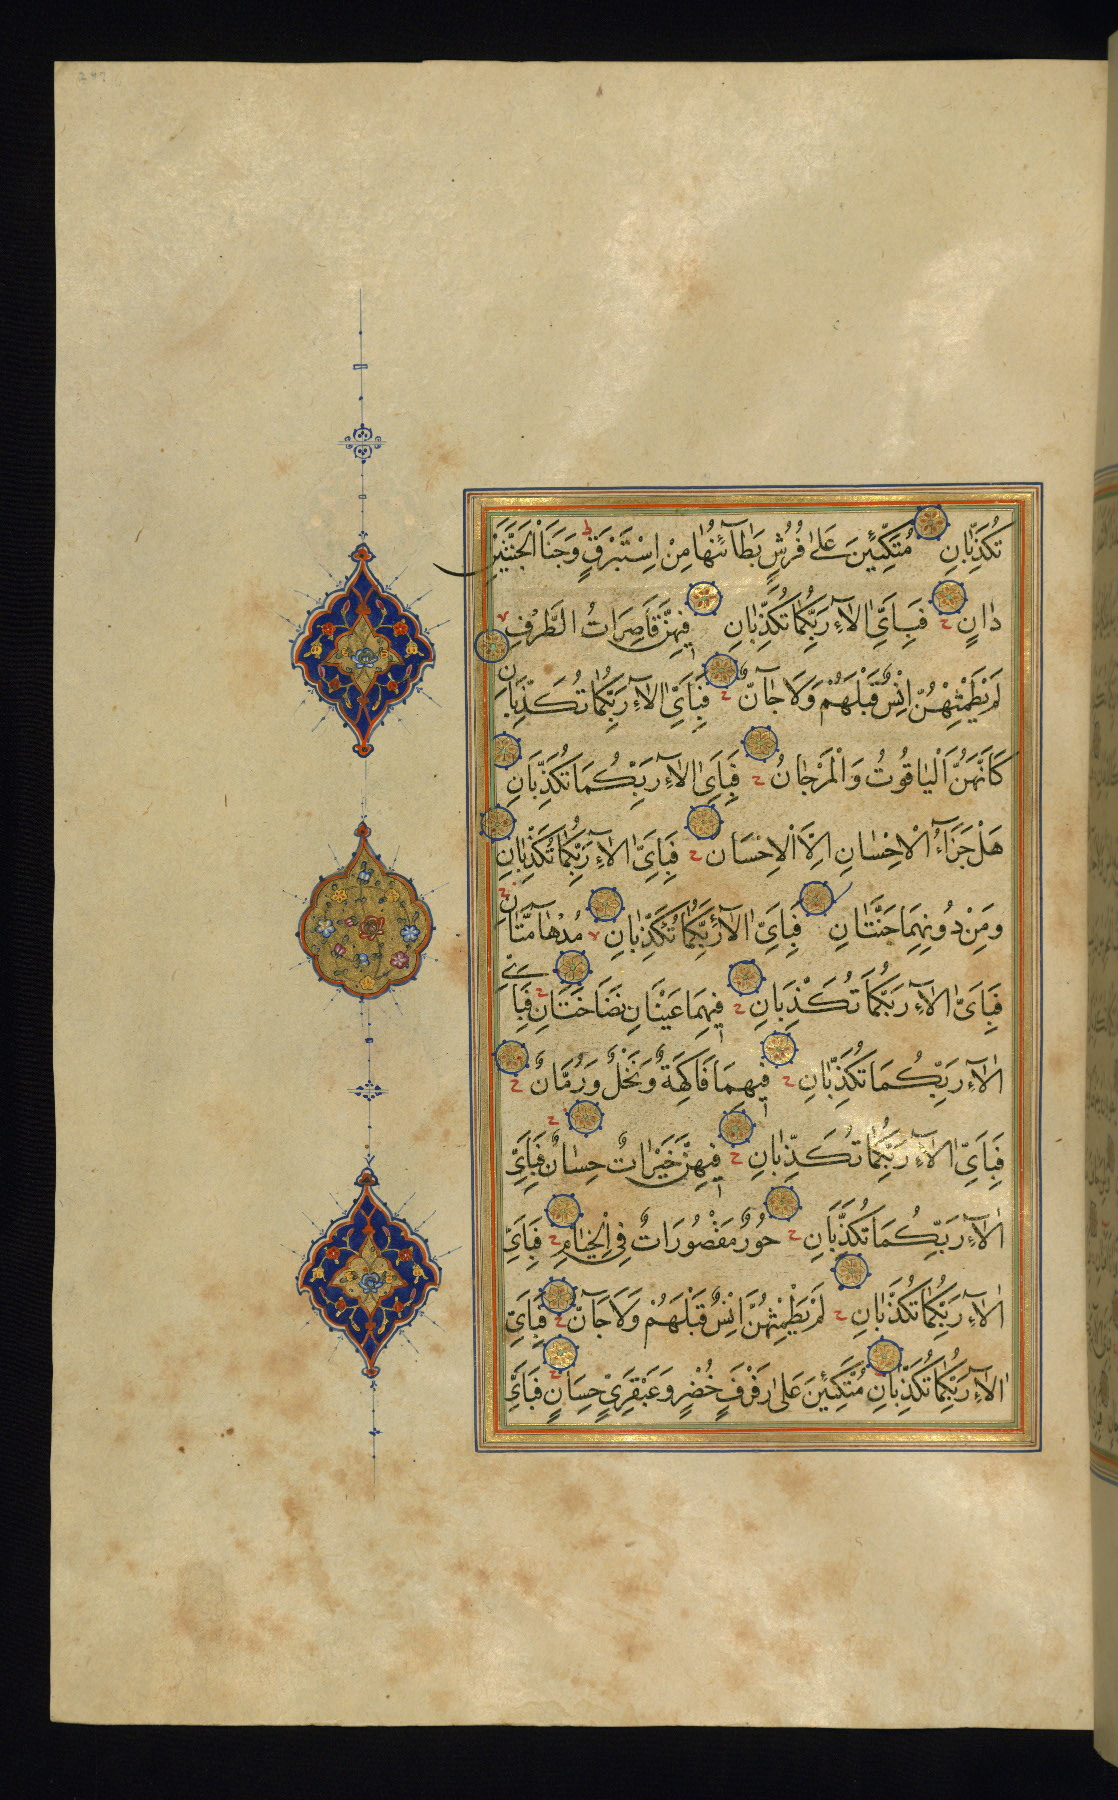 تُكَذِّبَانِ مُتَّكِئِينَ عَلَىٰ فُرُشٍ بَطَآئِنُهَا مِنْ اِسْتَبْرَقٍ ط وَجَنَا الْجَنَّتَيْنِ
دَانٍ ح فَبِاَيِّ اٰلَآءِ رَبِّكُمَا تُكَذِّبَانِ فِيهِنَّ قَاصِرَاتُ الطَّرْفِ
لَمْ يَطْمِثْهُنَّ اِنْسٌ قَبْلَهُمْ وَلَا جَآنٌّ ح فَبِاَيِّ اٰلَآءِ رَبِّكُمَا تُكَذِّبَانِ
كَاَنَّهُنَّ الْيَاقُوتُ وَالْمَرْجَانُ ح فَبِاَيِّ اٰلَآءِ رَبِّكُمَا تُكَذِّبَانِ
هَلْ جَزَآءُ الْاِحْسَانِ اِلَّا الْاِحْسَان ح فَبِاَيِّ اٰلَآءِ رَبِّكُمَا تُكَذِّبَانِ
وَمِنْ دُونِهِمَا جَنَّتَانِ فَبِاَيِّ اٰلَآءِ رَبِّكُمَا تُكَذِّبَانِ مُدْهَآمَّتَانِ ح
فَبِاَيِّ اٰلَآءِ رَبِّكُمَا تُكَذِّبَانِ ح فِيهِمَا عَيْنَانِ نَضَّاخَتَانِ ح فَبِاَيِّ
اٰلَآءِ رَبِّكُمَا تُكَذِّبَانِ ح فِيهِمَا فَاكِهَةٌ وَنَخْلٌ وَرُمَّانٌ ح
فَبِاَيِّ اٰلَآءِ رَبِّكُمَا تُكَذِّبَانِ ح فِيهِنَّ خَيْرَاتٌ حِسَانٌ ح فَبِاَيِّ
اٰلَآءِ رَبِّكُمَا تُكَذِّبَانِ ح حُورٌ مَقْصُورَاتٌ فِي الْخِيَامِ ح فَبِاَيِّ
اٰلَآءِ رَبِّكُمَا تُكَذِّبَانِ ح لَمْ يَطْمِثْهُنَّ اِنْسٌ قَبْلَهُمْ وَلَا جَآنٌّ ح فَبِاَيِّ
اٰلَآءِ رَبِّكُمَا تُكَذِّبَانِ ح مُتَّكِئِينَ عَلَىٰ رَفْرَفٍ خُضْرٍ وَعَبْقَرِيٍّ حِسَانٍ ح فَبِاَيِّ